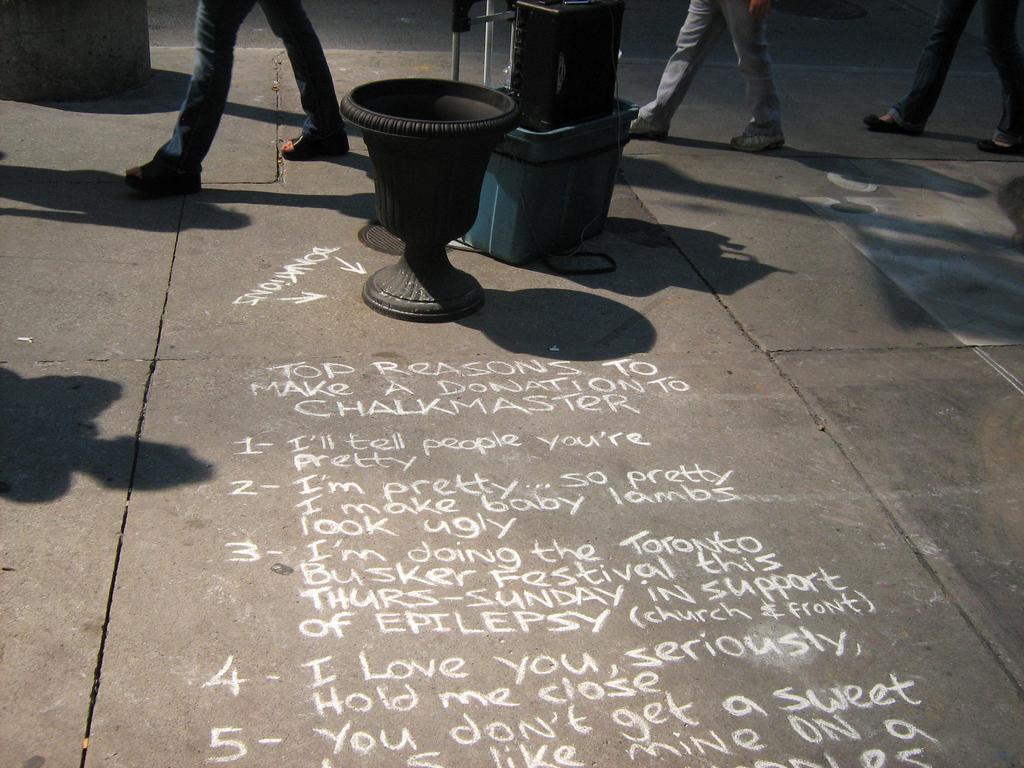 DONATIONS
TOP REASONS TO
MAKE A DONATION TO
CHALKMASTER
1- I'll tell people you're
Pretty
2- I'm pretty... so pretty
I make baby lambs
look ugly
3- I'm doing the Toronto
Busker Festival this
THURS-SUNDAY IN support
of EPILEPSY (church & front)
4- I Love you, seriously,
Hold me close
5- You don't get a sweet
like mine ON a